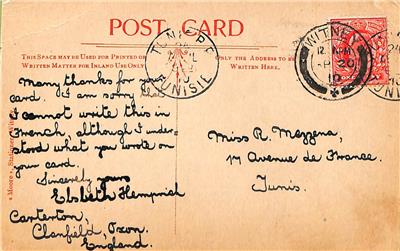 POST CARD
THIS SPACE MAY BE USED FOR PRINTED OR
WRITTEN MATTER FOR INLAND USE ONLY.
ONLY THE ADDRESS TO BE
WRITTEN HERE.
TUNIS
TUNISIE
WITNEY
SP 20
10
Many thanks for your
card. I am sorry that
I cannot write this in
French, although I under-
stood what you wrote on
your card.
Sincerely yours
Elsbeth Hemprich
Carterton,
Clanfield, Oxon.
England.
Miss R. Mezzena,
17 Avenue de France.
Tunis.